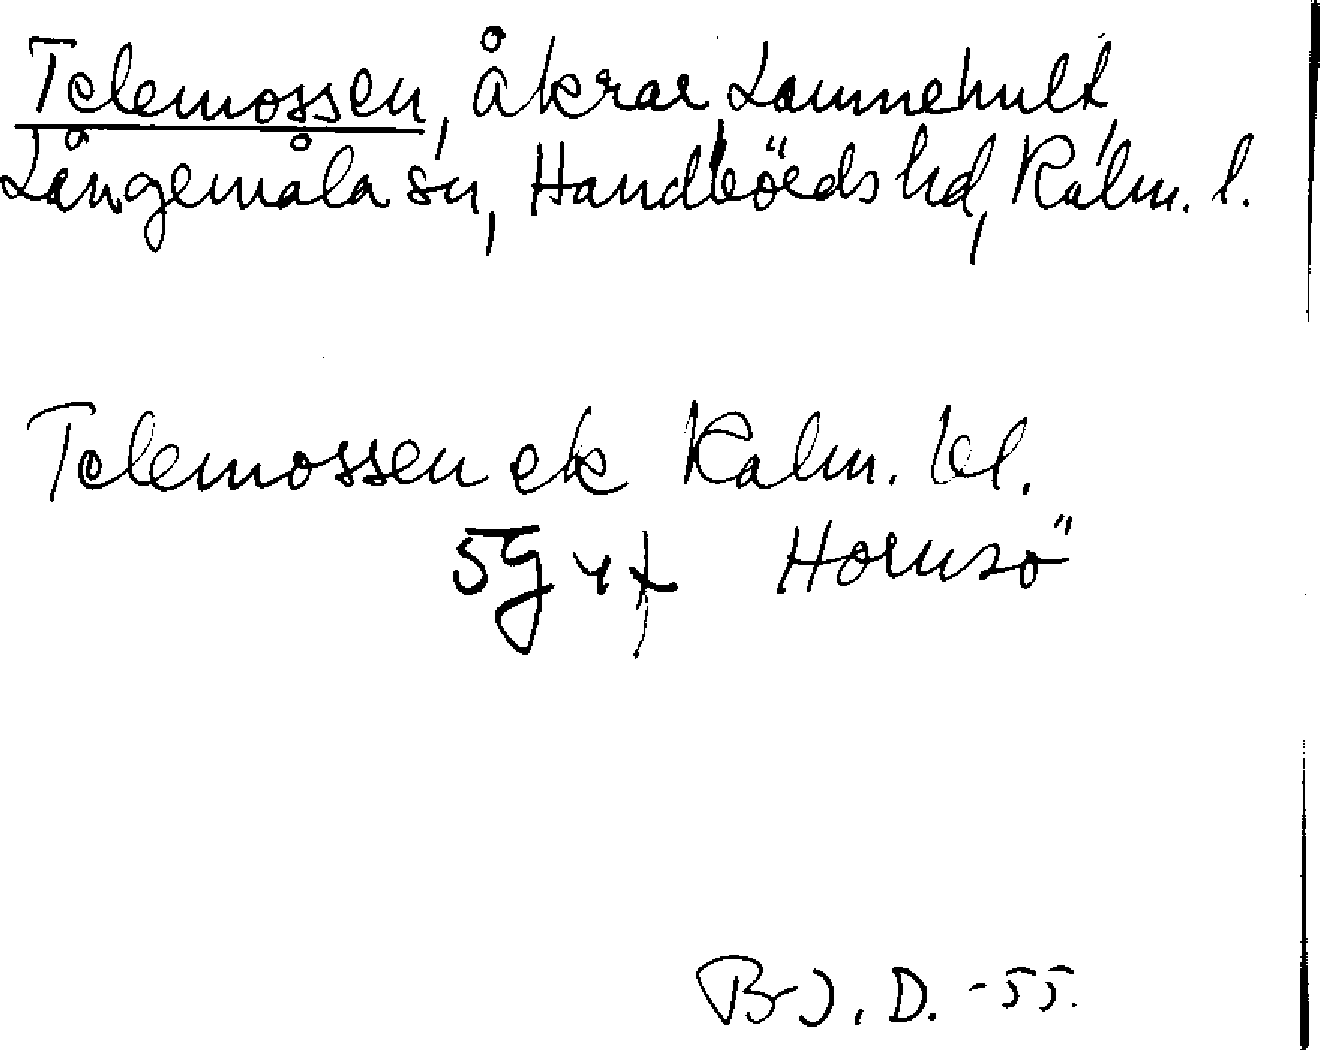 Telemossen, åkrar, Lammehult,
Långemåla sn, Handbörds hd, Kalm. l.
Telemossen ek Kalm. bl.
5g Hornsö
B-J. D. -55.